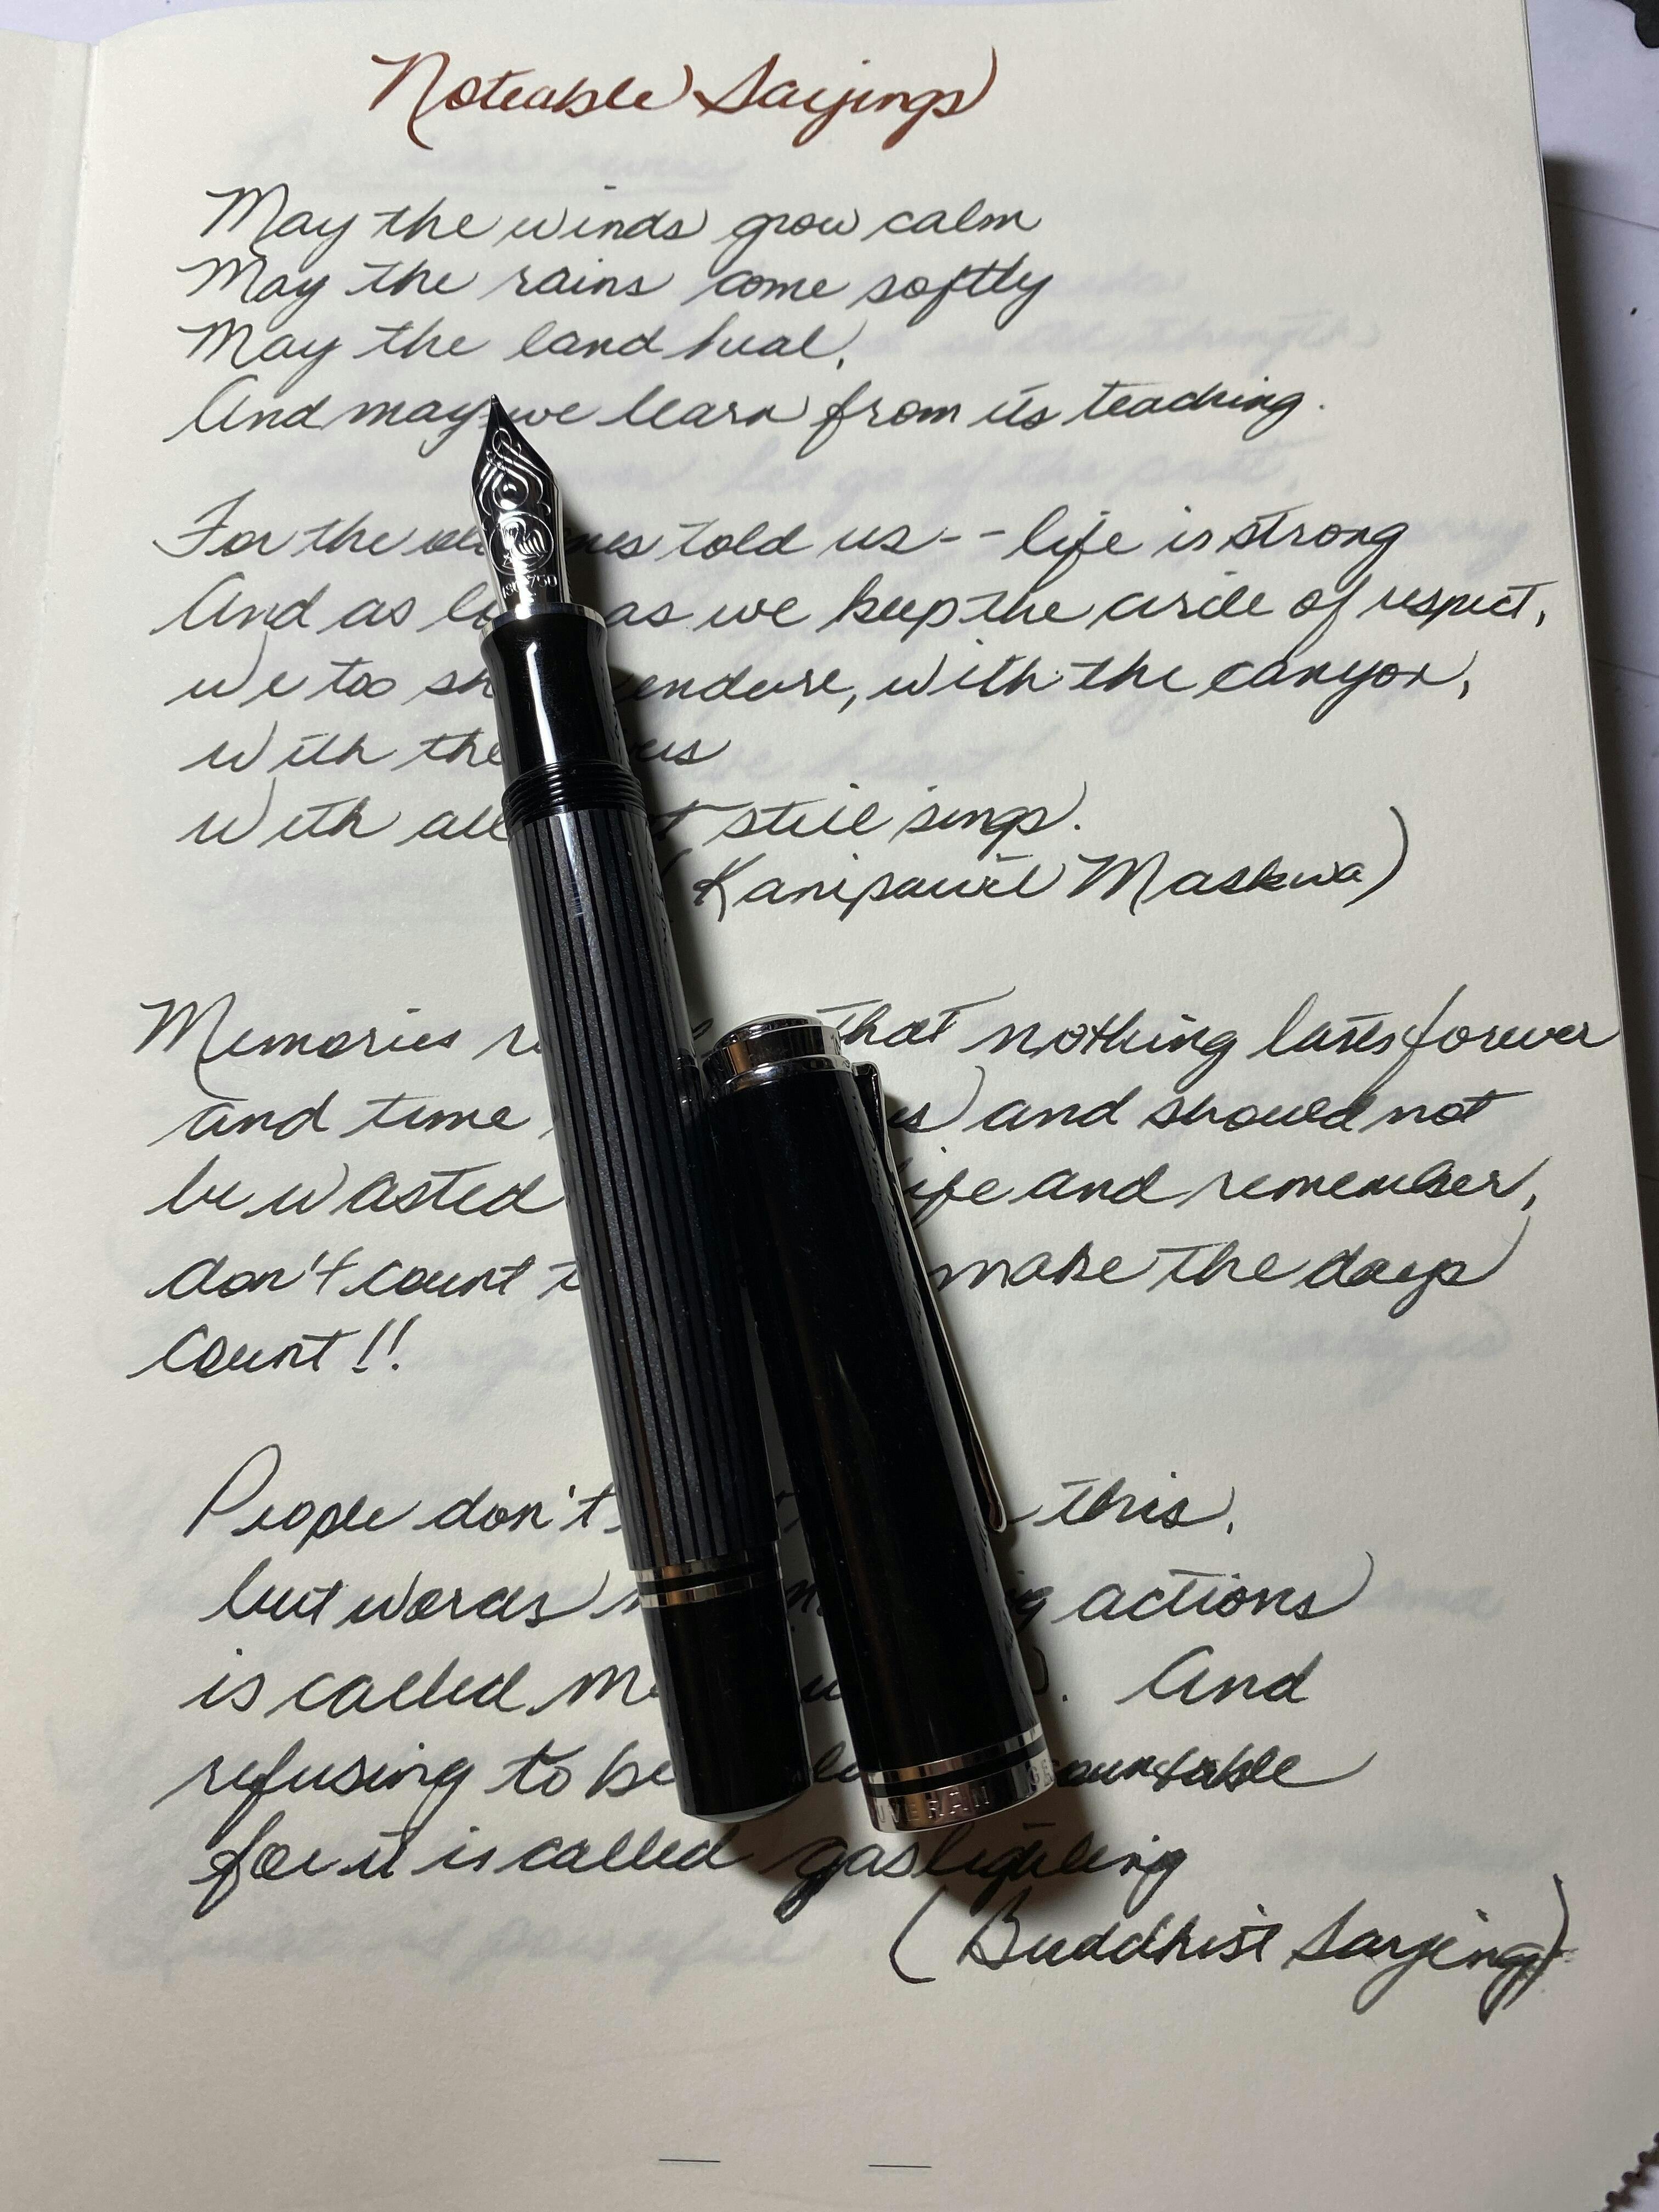 Noteable Sayings
May the winds grow calm
May the rains come softly
May the land heal,
And may we learn from its teaching.
For the told us -- life is strong
And as as we keep the circle of respect,
we too endure, with the canyon,
with the
with all still sings.
(Kanipawit Maskwa)
Memories that nothing lasts forever
and time and should not
be wasted life and remember,
don't count make the days
count!!
People don't this.
but words actions
is called And
refusing to be
for it is called gaslighting
(Buddhist Saying)
750